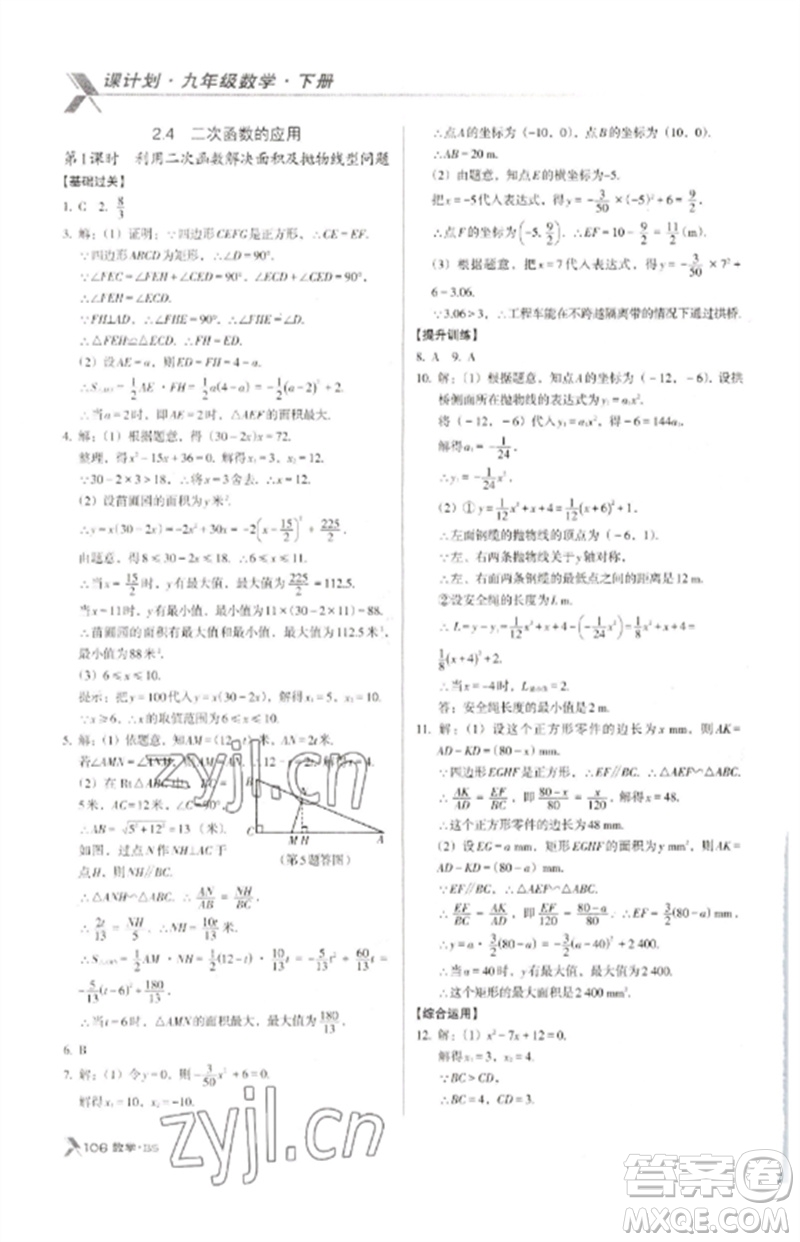 课计划·九年级数学·下册
2.4 二次函数的应用
第1课时 利用二次函数解决面积及抛物线型问题
【基础过关】
1. C 2. 8/3
3. 解:(1)证明:∵四边形CEFG是正方形,∴CE=EF.
∵四边形ABCD为矩形,∴∠D=90°.
∵∠FEC=∠FEH+∠CED=90°,∠DCE+∠CED=90°,
∴∠FEH=∠ECD.
∵FH⊥AD,∴∠FHE=90°,∴∠FHE=∠D=90°,
∴△FEH≌△ECD,∴FH=ED.
(2)设AE=a,则ED=FH=4-a,
∴S△AEF=1/2AE·FH=1/2a(4-a)=-1/2(a-2)²+2,
∴当a=2时,即AE=2时,△AEF的面积最大.
4. 解:(1)根据题意,得(30-2x)x=72.
整理,得x²-15x+36=0. 解得x₁=3,x₂=12.
∵30-2×3>18,∴x=3应舍去,∴x=12.
(2)设苗圃园的面积为y米².
∴y=x(30-2x)=-2x²+30x=-2(x-15/2)²+225/2.
由题意,得8≤30-2x≤18,∴6≤x≤11.
∴当x=15/2时,y有最大值,最大值为225/2=112.5.
当x=11时,y有最小值,最小值为11×(30-2×11)=88.
∴苗圃园的面积有最大值和最小值,最大值为112.5米²,最
小值为88米².
(3)6≤x≤10.
提示:把y=100代入y=x(30-2x),解得x₁=5,x₂=10.
∵x≥6,∴x的取值范围为6≤x≤10.
5. 解:(1)依题意,知AM=(12-t)米,AN=2t米.
若∠AMN=∠ANM,则AM=AN,∴12-t=2t,∴t=4.
(2)在Rt△ABC中,BC=
5米,AC=12米,∠C=90°,
∴AB=√5²+12²=13(米).
如图,过点N作NH⊥AC于
点H,则NH∥BC,
∴△ANH∽△ABC,∴AN/AB=NH/BC,
∴2t/13=NH/5,∴NH=10t/13米.
∴S△AMN=1/2AM·NH=1/2(12-t)·10t/13=-5/13t²+60/13t=
-5/13(t-6)²+180/13.
∴当t=6时,△AMN的面积最大,最大值为180/13米².
C M H A
(第5题答图)
6. B
7. 解:(1)令y=0,则-3/50x²+6=0.
解得x₁=10,x₂=-10.
106 数学·BS
∴点A的坐标为(-10,0),点B的坐标为(10,0).
∴AB=20 m.
(2)由题意,知点E的横坐标为-5.
把x=-5代入表达式,得y=-3/50×(-5)²+6=9/2,
∴点F的坐标为(-5,9/2),∴EF=10-9/2=11/2(m).
(3)根据题意,把x=7代入表达式,得y=-3/50×7²+
6=3.06.
∵3.06>3,∴工程车能在不跨越隔离带的情况下通过拱桥.
【提升训练】
8. A 9. A
10. 解:(1)根据题意,知点A的坐标为(-12,-6). 设拱
桥侧面所在的抛物线的表达式为y₁=a₁x².
将(-12,-6)代入y₁=a₁x²,得-6=144a₁.
解得a₁=-1/24.
∴y₁=-1/24x².
(2)①y=1/12x²+x+4=1/12(x+6)²+1,
∴左面钢缆的抛物线的顶点为(-6,1).
∵左、右两条抛物线关于y轴对称,
∴左、右面两条钢缆的最低点之间的距离是12 m.
②设安全绳的长度为L m.
∴L=y-y₁=1/12x²+x+4-(-1/24x²)=1/8x²+x+4=
1/8(x+4)²+2.
∴当x=-4时,L最小值=2.
答:安全绳长度的最小值是2 m.
11. 解:(1)设这个正方形零件的边长为x mm,则AK=
AD-KD=(80-x)mm.
∵四边形EGHF是正方形,∴EF∥BC.∴△AEF∽△ABC.
∴AK/AD=EF/BC,即80-x/80=x/120,解得x=48.
∴这个正方形零件的边长为48 mm.
(2)设EG=a mm,矩形EGHF的面积为y mm²,则AK=
AD-KD=(80-a)mm.
∵EF∥BC,∴△AEF∽△ABC.
∴EF/BC=AK/AD,即EF/120=80-a/80.∴EF=3/2(80-a)mm.
∴y=a·3/2(80-a)=-3/2(a-40)²+2 400.
∴当a=40时,y有最大值,最大值为2 400.
∴这个矩形的最大面积是2 400 mm².
【综合运用】
12. 解:(1)x²-7x+12=0.
解得x₁=3,x₂=4.
∵BC>CD,
∴BC=4,CD=3.
zyjl.cn
zyjl.cn
答案卷
MXQE.COM